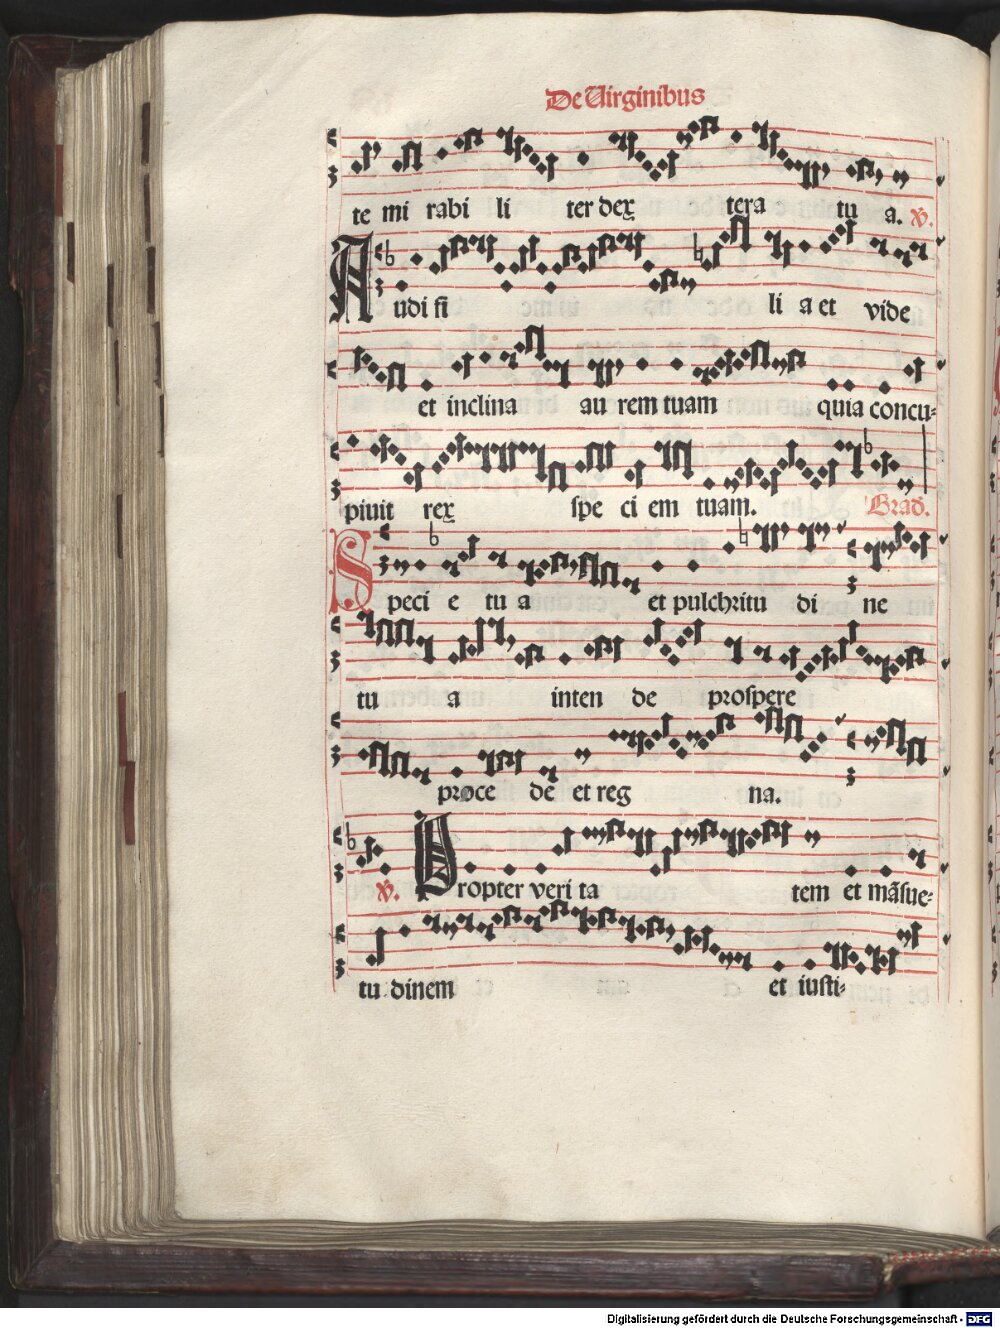 De Uirginibus
te mi rabi li ter dex tera tu a. ℣.
Audi fi li a et vide
et inclina au rem tuam quia concu⸗
piuit rex spe ci em tuam. Grad.
Speci e tu a et pulchritu di ne
tu a inten de prospere
proce de et reg na.
℣. Propter veri ta tem et mãsue⸗
tu dinem et iusti⸗
Digitalisierung gefördert durch die Deutsche Forschungsgemeinschaft - DFG